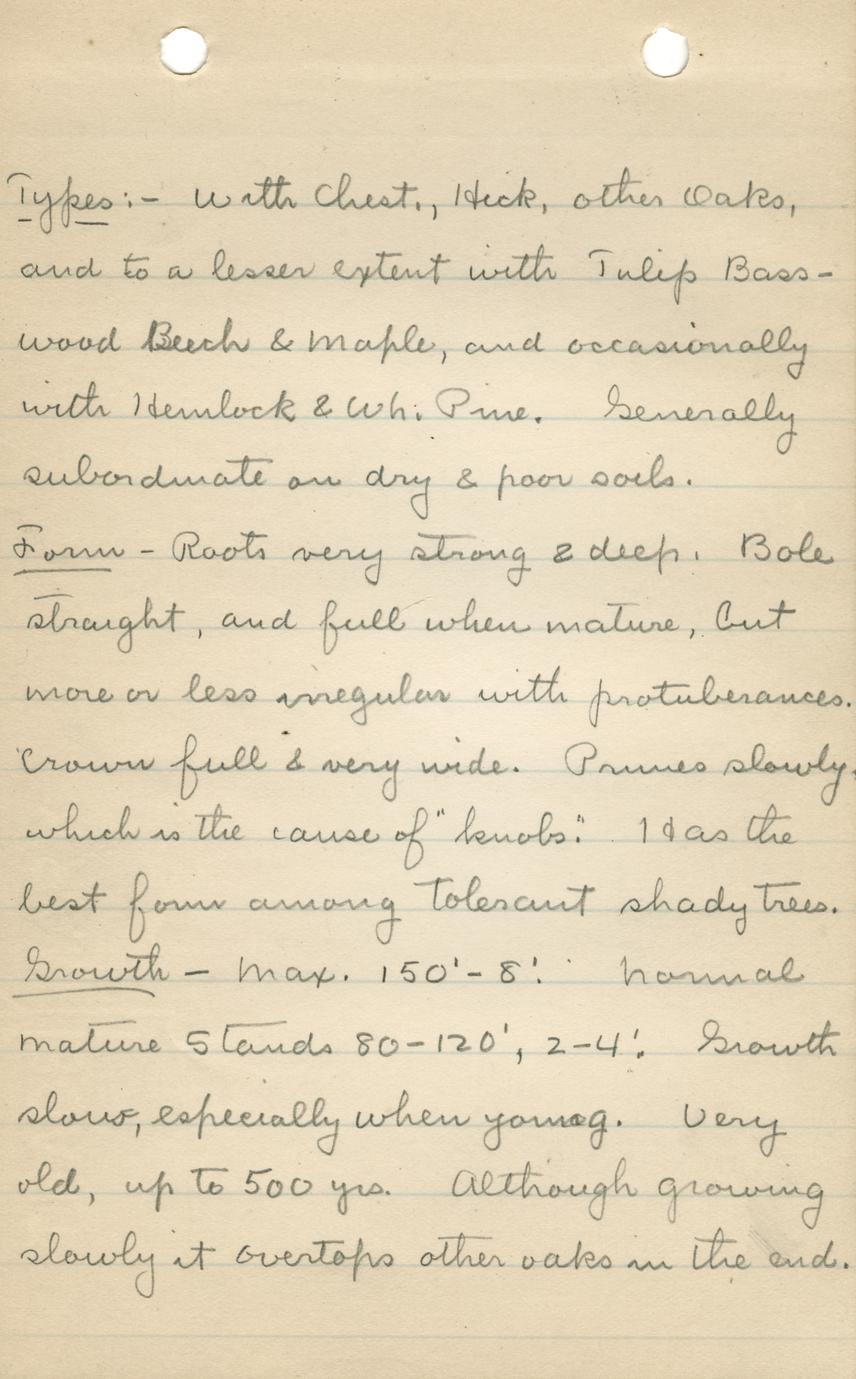 Types:- With Chest., Hick, other Oaks,
and to a lesser extent with Tulip Bass-
wood Beech & Maple, and occasionally
with Hemlock & Wh. Pine. Generally
subordinate on dry & poor soils.
Form - Roots very strong & deep. Bole
straight, and full when mature, but
more or less irregular with protuberances.
Crown full & very wide. Prunes slowly,
which is the cause of "knobs". Has the
best form among tolerant shady trees.
Growth - Max. 150'-8'. Normal
mature Stands 80-120', 2-4'. Growth
slow, especially when young. Very
old, up to 500 yrs. Although growing
slowly it overtops other oaks in the end.